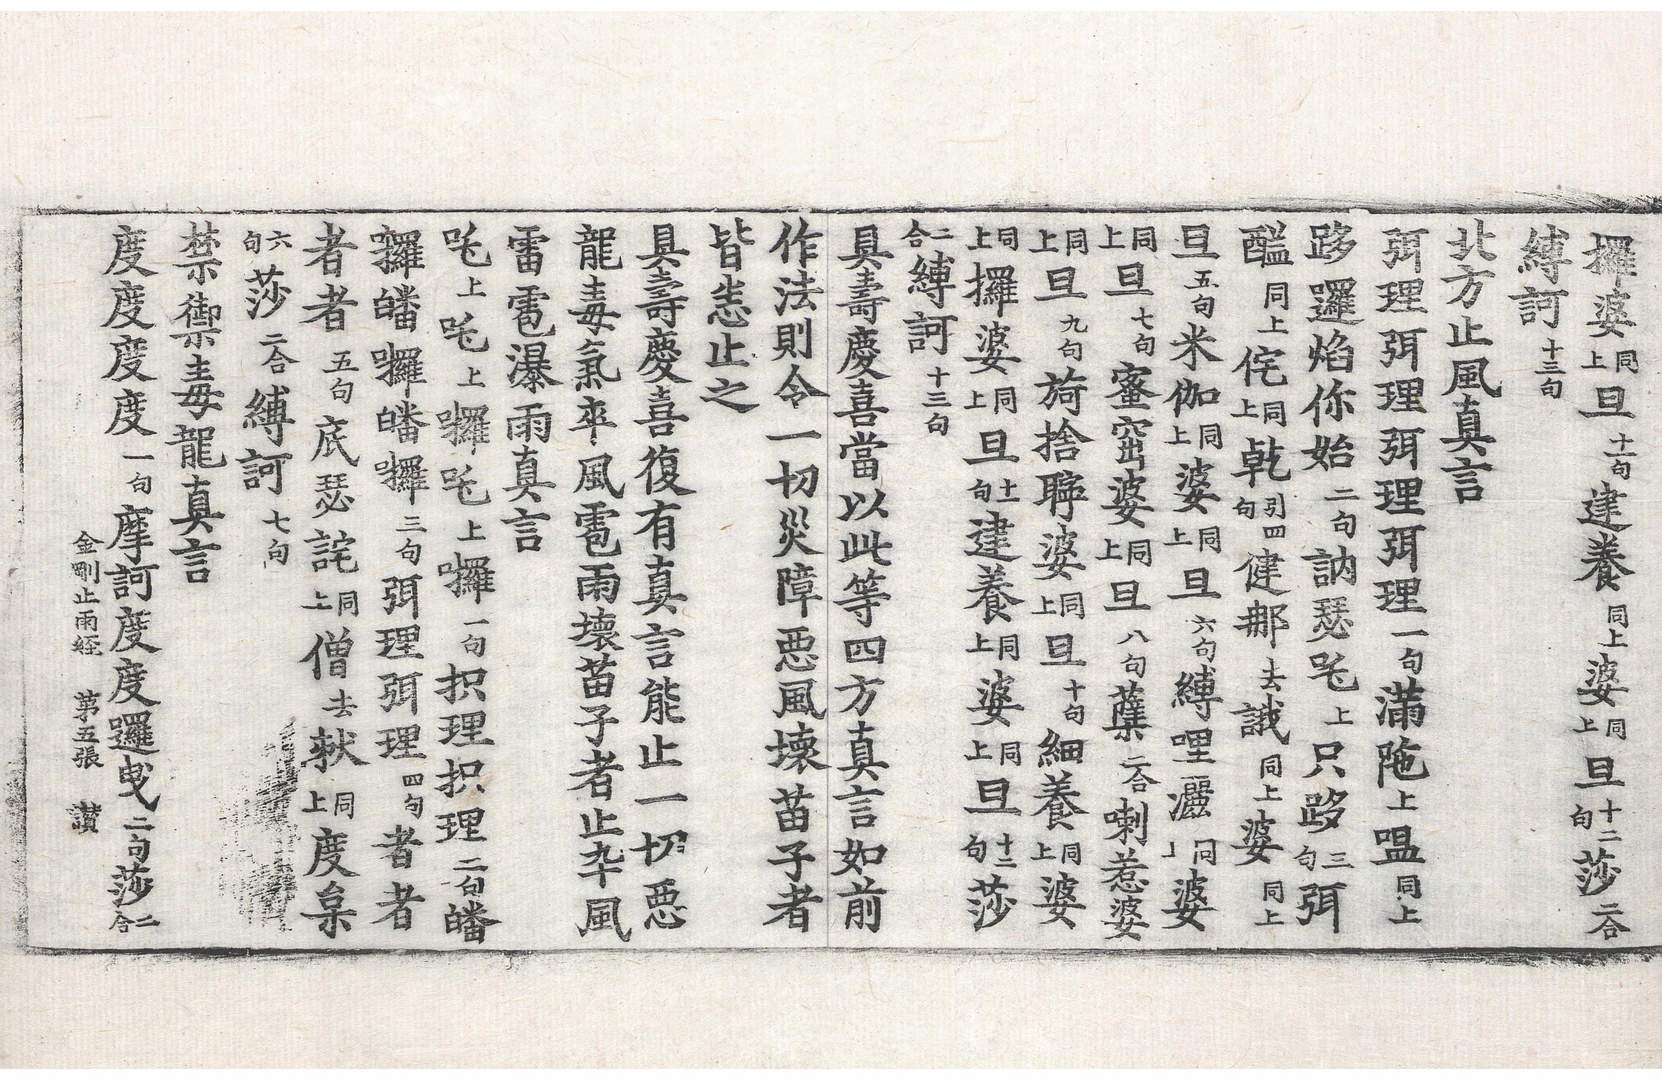 攞婆同上旦十一句建養同上婆同上旦十二句莎二合
縛訶十三句
北方止風真言
弭理弭理弭理弭理一句滿陁上嗢同上
跢邏焰你始二句訥瑟吒上只跢三句弭
醯同上侘同上乾引四句健那去誐同上婆同上
旦五句米伽同上婆同上旦六句縛哩灑同上婆
同上旦七句蜜窣婆同上旦八句蘖二合喇惹婆
同上旦九句旖捨聹婆同上旦十句細養同上婆
同上攞婆同上旦十一句建養同上婆同上旦十二句莎
二合縛訶十三句
具壽慶喜當以此等四方真言如前
作法則令一切災障惡風壞苗子者
皆悉止之
具壽慶喜復有真言能止一切惡
龍毒氣卒風雹雨壞苗子者止卒風
雷雹瀑雨真言
吒上吒上囉吒上囉一句抧理抧理二句皤
囉皤囉皤囉三句弭理弭理四句者者
者者五句底瑟詫同上僧去欶同上度枲
六句莎二合縛訶七句
禁禦毒龍真言
度度度度一句摩訶度度邏曳二句莎二合
金剛止雨経　第五張　讃